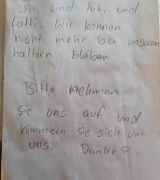 Wir sind Kiki und
Lotti. Wir können
nicht mehr bei unseren
haltern bleiben
Bitte nehmen
Sie uns auf und
kümmern sie sich um
uns. Danke ♡